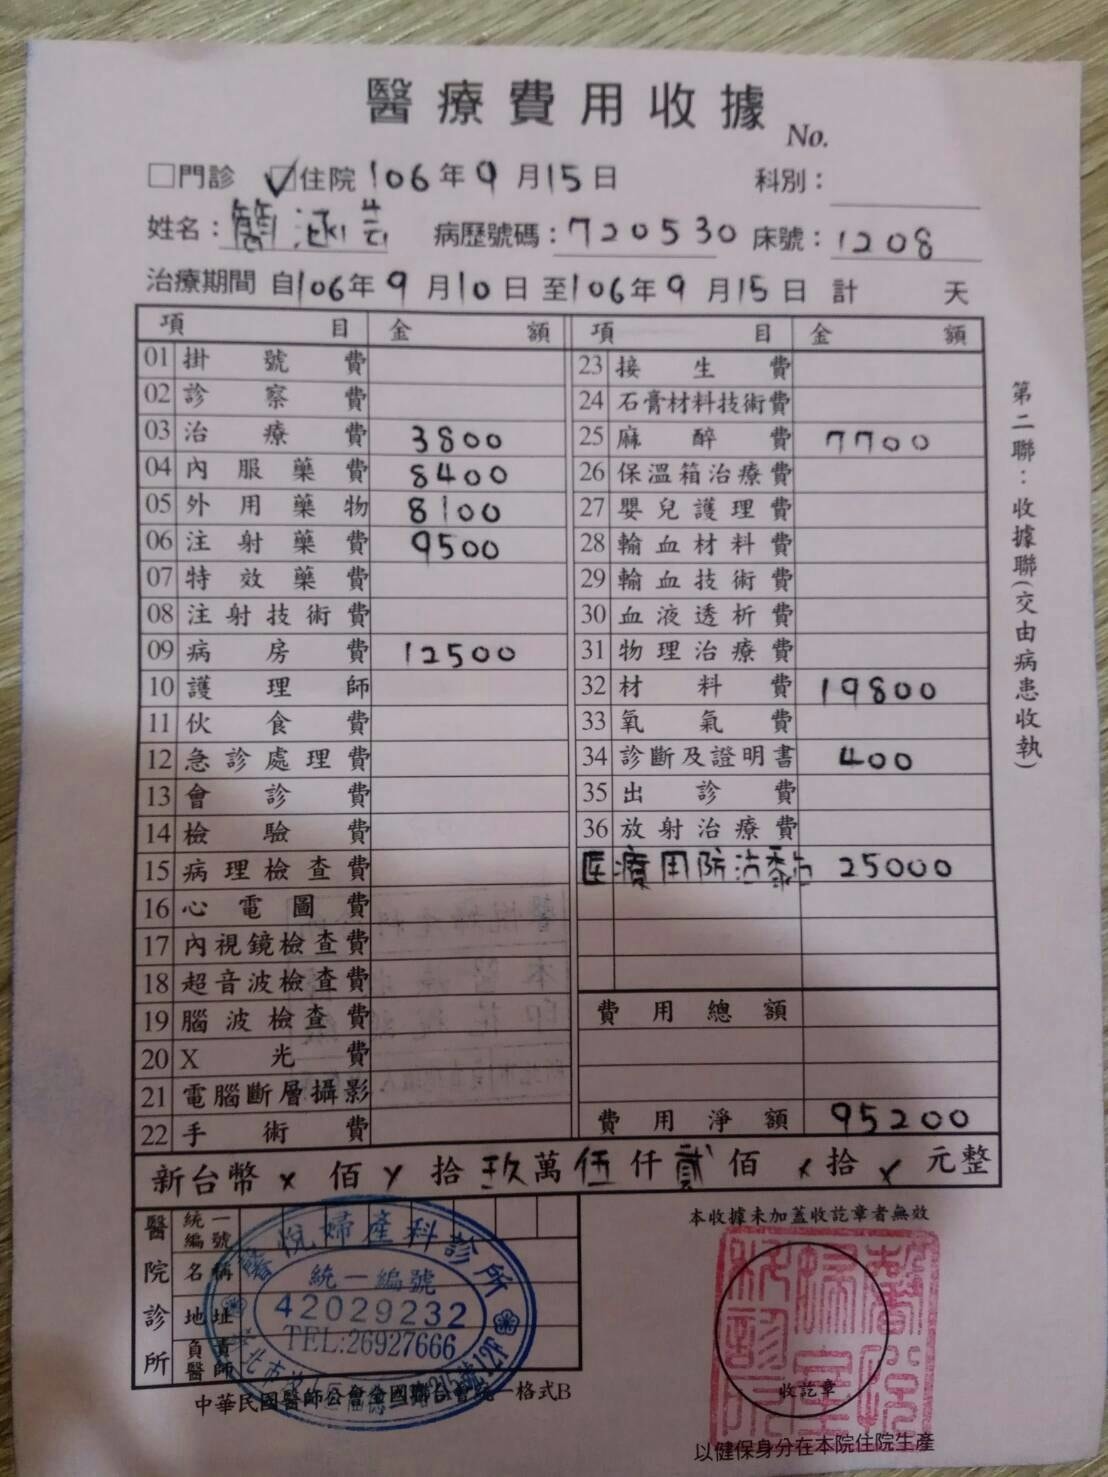 醫療費用收據
No.
□門診 ☑住院 106年9月15日 科別：
姓名：簡涵芸 病歷號碼：720530 床號：1208
治療期間 自106年9月10日至106年9月15日 計 天
項目 金額 項目 金額
01 掛號費 23 接生費
02 診察費 24 石膏材料技術費
03 治療費 3800 25 麻醉費 7700
04 內服藥費 8400 26 保溫箱治療費
05 外用藥物 8100 27 嬰兒護理費
06 注射藥費 9500 28 輸血材料費
07 特效藥費 29 輸血技術費
08 注射技術費 30 血液透析費
09 病房費 12500 31 物理治療費
10 護理師 32 材料費 19800
11 伙食費 33 氧氣費
12 急診處理費 34 診斷及證明書 400
13 會診費 35 出診費
14 檢驗費 36 放射治療費
15 病理檢查費 医療用防沾黏 25000
16 心電圖費
17 內視鏡檢查費
18 超音波檢查費
19 腦波檢查費 費用總額
20 X光費
21 電腦斷層攝影
22 手術費 費用淨額 95200
新台幣 x 佰 x 拾 玖萬 伍仟 貳佰 x 拾 x 元整
第二聯：收據聯(交由病患收執)
醫院診所
統一編號
名稱
地址
負責醫師
醫悅婦產科診所
統一編號
42029232
TEL:26927666
中華民國醫師公會全國聯合會統一格式B
本收據未加蓋收訖章者無效
收訖章
以健保身分在本院住院生產